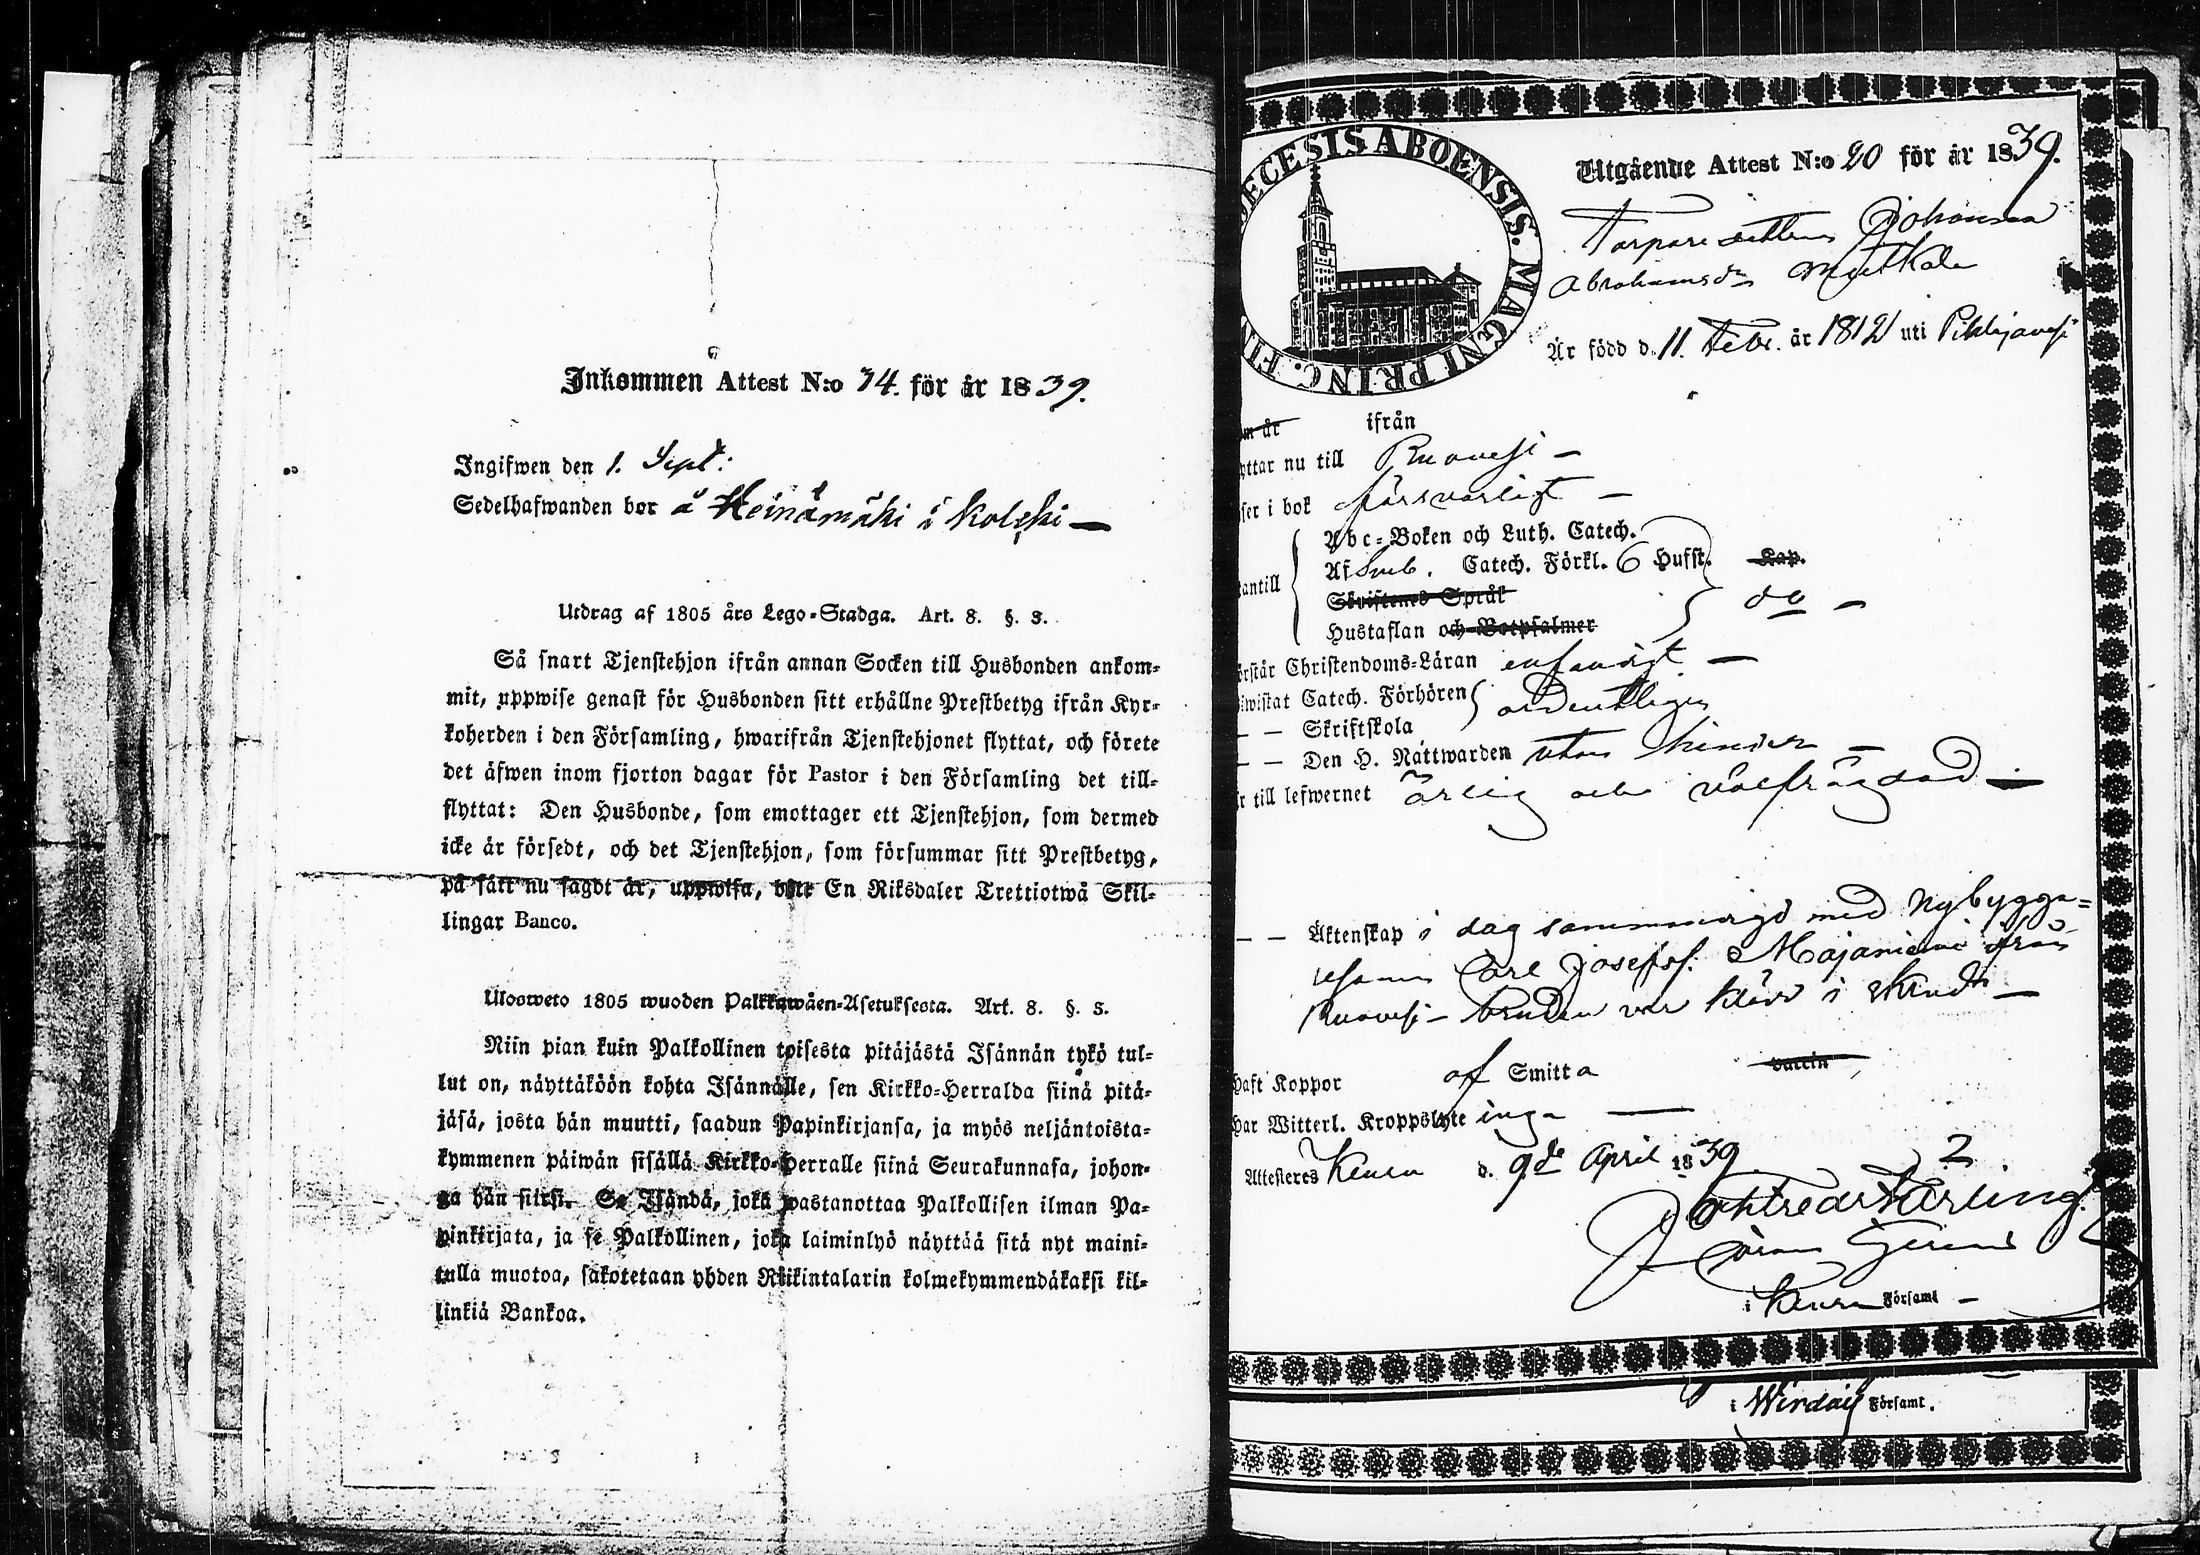 Inkommen Attest N:o 74. för år 1839.
Ingifwen den 1. Sept:
Sedelhafwanden bor å Heinämäki i Kolcki —
Utdrag af 1805 års Lego-Stadga. Art. 8. §. 3.
Så snart Tjenstehjon ifrån annan Socken till Husbonden ankom-
mit, uppwise genast för Husbonden sitt erhållne Prestbetyg ifrån Kyr-
koherden i den Församling, hwarifrån Tjenstehjonet flyttat, och förete
det äfwen inom fjorton dagar för Pastor i den Församling det till-
flyttat: Den Husbonde, som emottager ett Tjenstehjon, som dermed
icke är försedt, och det Tjenstehjon, som försummar sitt Prestbetyg,
på sätt nu sagdt är, uppwisa, böte En Riksdaler Trettiotwå Skil-
lingar Banco.
Ulosweto 1805 wuoden Palkkawäen-Asetuksesta. Art. 8. §. 3.
Niin pian kuin Palkollinen toisesta pitäjästä Isännän tykö tul-
lut on, näyttäköön kohta Isännälle, sen Kirkko-Herralda siinä pitä-
jäsä, josta hän muutti, saadun Papinkirjansa, ja myös neljäntoista-
kymmenen päiwän sisällä Kirkko-Herralle siinä Seurakunnasa, johon-
ga hän siirsi. Se Isändä, joka wastanottaa Palkollisen ilman Pa-
pinkirjata, ja se Palkollinen, joka laiminlyö näyttää sitä nyt maini-
tulla muotoa, sakotetaan yhden Riikintalarin kolmekymmendäkaksi kil-
linkiä Bankoa.
DECESIS ABOENSIS. MAGNI PRINC. FIN
Utgående Attest N:o 20 för år 1839.
Torpare dottren Johanna
Abrahamsdr
Är född d. 11. Febr. år 1812 uti Pihlajavesi
m år ifrån
yttar nu till Ruovesi —
ser i bok försvarligt —
Abc-Boken och Luth. Catech.
Af Sveb. Catech. Förkl. 6 Hufst. Kap.
antill
Skriftenes Språk do —
Hustaflan och Botpsalmer
örstår Christendoms-Läran enfaldigt —
iwistat Catech. Förhören ordentligen
— — Skriftskola
— — Den H. Nattwarden utan hinder —
r till lefwernet ärlig och välfrägdad —
— — Äktenskap i dag sammanvigd med Nybygga-
Carl Josefss. Majaniemi ifrån
Ruovesi — bruden var klädd i skrud —
haft Koppor af Smitta vaccin
har Witterl. Kroppslyte inga —
Attesteras Keuru d. 9de April 1839
i Keuru Församl —
i Wirdois Församl.